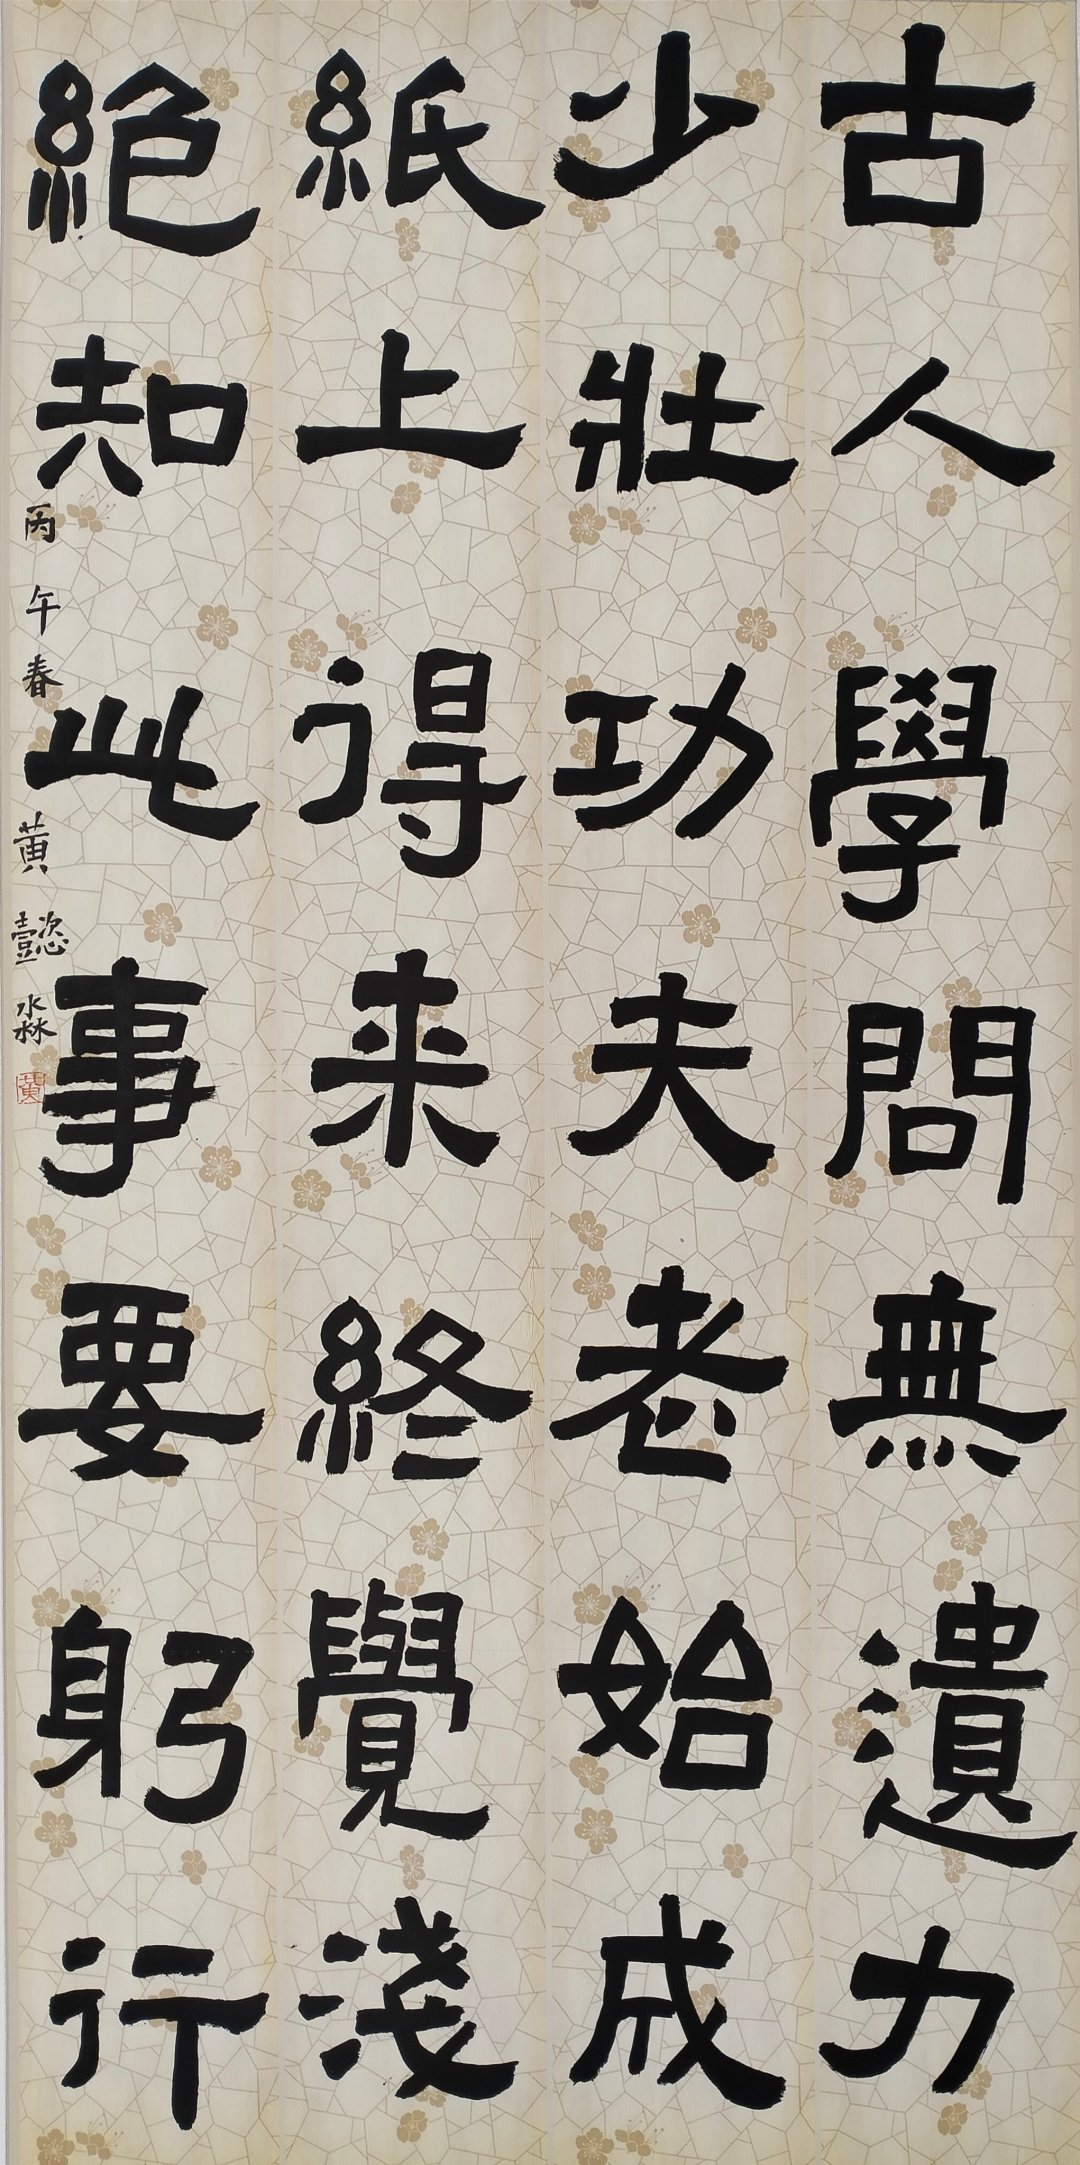 古人學問無遺力
少壯功夫老始成
紙上得来終覺淺
絕知此事要躬行
丙午春 黄懿淼
黄